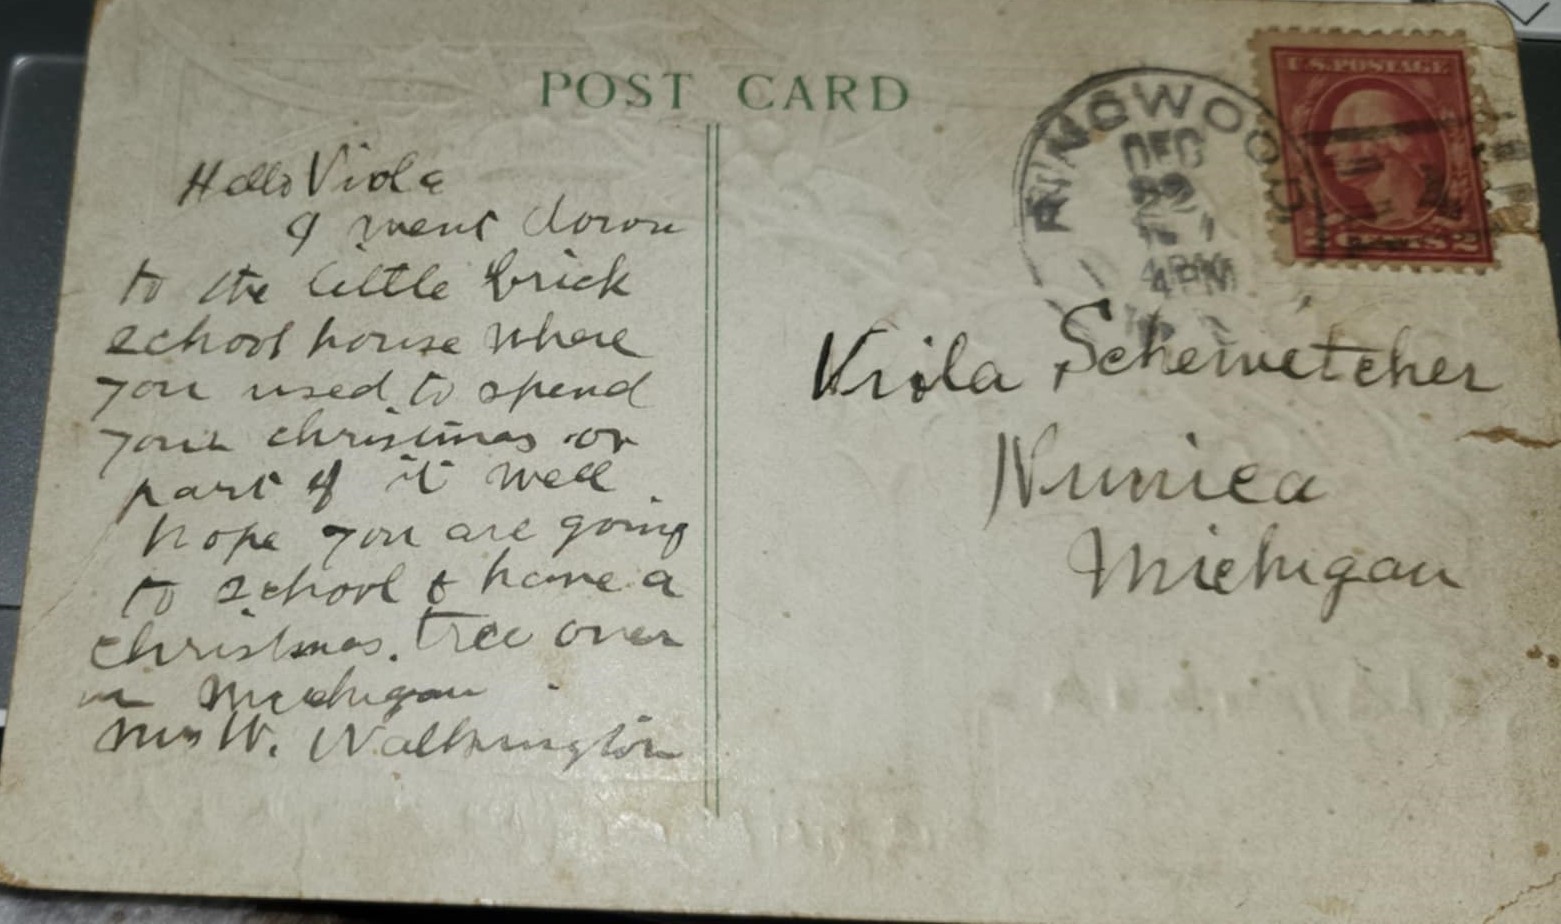 POST CARD
U.S. POSTAGE
RINGWOOD
DEC
22
4 PM
2 2
Hello Viola
I went down
to the little brick
school house where
you used to spend
your christmas or
part of it well
hope you are going
to school & have a
christmas tree over
in Michigan
Mrs W.
Viola
Nunica
Michigan